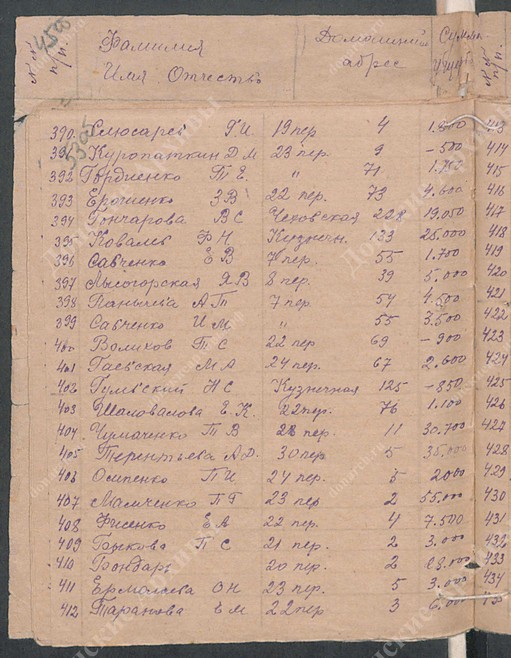 4500
№№ п/п. Фамилия Имя Отчество Домашний адрес Сумма ущерб №№ п/п.
390 Слюсарев Г И. 19 пер 4 413
391 Куропаткин Д М 23 пер. 9 - 500 414
392 Гордиенко Т Е „ 71 415
393 З В 22 пер. 73 4.600 416
394 Гончарова В С Чеховская 228 19.050 417
395 Ковалев Ф Н Кузнечн. 133 25.000 418
396 Савченко Е В 7 пер. 55 1.700 419
397 Лысогорская Я В 8 пер. 39 5.000 420
398 А Т 7 пер. 54 4.500 421
399 Савченко И М „ 55 3.500 422
400 Волихов П С 22 пер 69 - 900 423
401 Гаевская М А 24 пер. 67 2.600 424
402 Н С Кузнечная 125 - 850 425
403 Шаповалова Е. К. 22 пер. 76 1.100 426
404 Чумаченко Т В 28 пер. 11 30.700 427
405 Терентьева А Д. 30 пер. 5 35.000 428
406 Осипенко П И 24 пер. 5 2000 429
407 Мамченко П Г 23 пер 2 55.000 430
408 Фисенко Е А 22 пер. 4 7.500 431
409 П С 21 пер. 2 3.000 432
410 Бондарь 20 пер. 2 28.000 433
411 Ермолаева О Н 23 пер. 5 3.000 434
412 Таранова Е М 22 пер 3 6.000 435